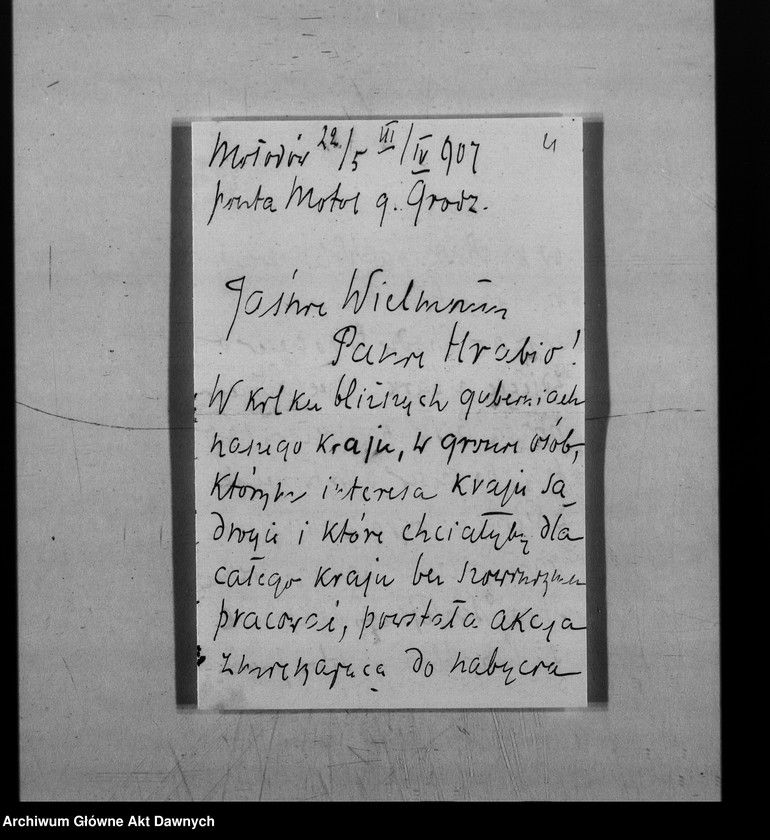 Mołodów 22/5 III/IV 907
poczta Motol g. Grodz.
Jaśnie Wielmożny
Panie Hrabio!
W kilku bliższych guberniach
naszego kraju, w gronie osób,
którym interesa kraju są
drogie i które chciałyby dla
całego kraju bez szowinizmu
pracować, powstała akcja
zmierzająca do nabycia
Archiwum Główne Akt Dawnych